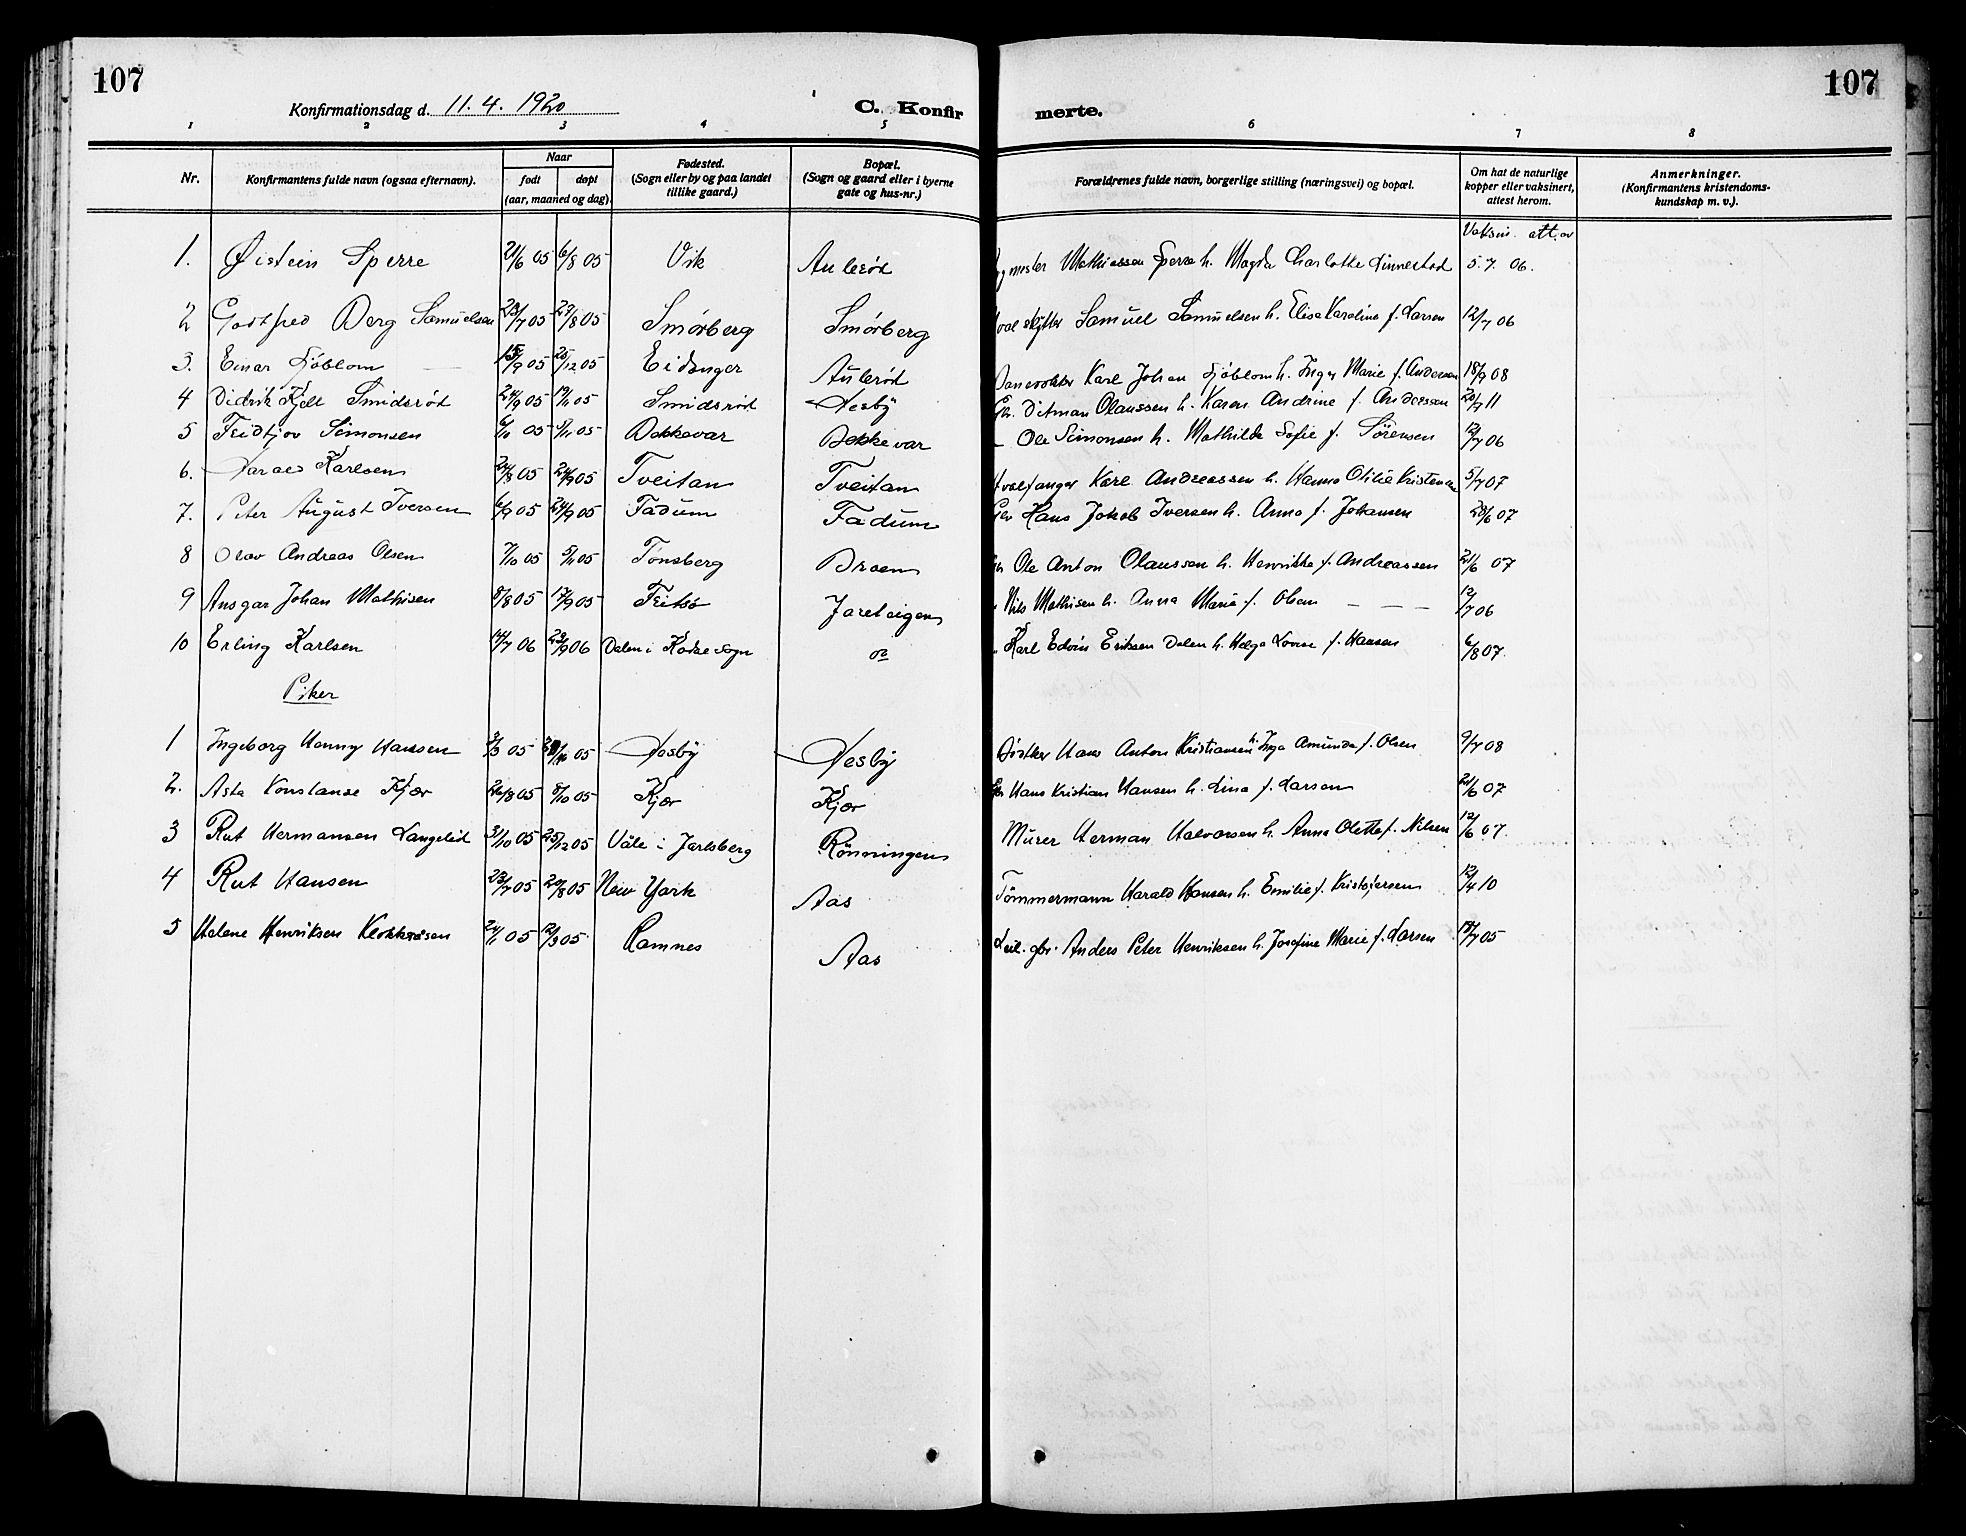 107
107
Konfirmationsdag d. 11. 4. 1920
C. Konfir
merte.
1 2 3 4 5 6 7 8
Nr.
Konfirmantens fulde navn (ogsaa efternavn).
Naar
født
døpt
(aar, maaned og dag).
Fødested.
(Sogn eller by og paa landet
tillike gaard.)
Bopæl.
(Sogn og gaard eller i byerne
gate og hus-nr.)
Forældrenes fulde navn, borgerlige stilling (næringsvei) og bopæl.
Om hat de naturlige
kopper eller vaksinert,
attest herom.
Anmerkninger.
(Konfirmantens kristendoms-
kundskap m. v.).
Vaksin. att. av
1. Øistein Sperre 21/6 05 6/8 05 Vik Aulerød Mathiassen Sperre h. Magda Charlotte Linnestad 5. 7. 06.
2 Godtfred Berg Samuelsen 23/7 05 27/8 05 Smørberg Smørberg Samuel Samuelsen h. Elise Karoline f. Larsen 12/7 06
3. Einar Sjöblom 15/9 05 25/12 05 Eidanger Aulerød Karl Johan Sjöblom h. Inger Marie f. Andersen 18/9 08
4 Didrik Kjell Smidsrød 24/9 05 19/11 05 Smidsrød Nesby Gbr. Ditman Olaussen h. Karen Andrine f. Andersen 20/7 11
5 Fridtjov Simonsen 6/10 05 5/11 05 Bekkevar Bekkevar - Ole Simonsen h. Mathilde Sofie f. Sørensen 12/7 06
6. Harald Karlsen 24/8 05 24/9 05 Tveitan Tveitan Hvalfanger Karl Andreassen h. Hanna Otilie Kristensen 5/7 07
7. Peter August Iversen 6/9 05 24/9 05 Fadum Fadum Gbr Hans Jakob Iversen h. Anna f. Johansen 20/6 07
8 Olav Andreas Olsen 7/10 05 5/11 05 Tønsberg Braen Ole Anton Olaussen h. Henrikke f. Andreassen 21/6 07
9 Ansgar Johan Mathisen 8/8 05 17/9 05 Fritsø Jareteigen Nils Mathisen h. Anna Marie f. Olsen - - - 12/7 06
10 Erling Karlsen 14/7 06 23/9 06 Dalen i Kodal sogn Karl Edvin Eriksen Dalen h. Helga Lovise f. Hansen 6/8 07.
Piker
1 Ingeborg Henny Hansen 3/3 05 05 Nesby Nesby Hans Anton Kristiansen h. Inga Amunda f. Olsen 9/7 08
2. Asta Konstanse Kjær 26/8 05 8/10 05 Kjær Kjær Gbr Hans Kristian Hansen h. Lina f. Larsen 21/6 07
3 Rut Hermansen Langelid 3/10 05 25/12 05 Våle i Jarlsberg Rønningen Murer Herman Halvorsen h. Anna Olette f. Nilsen 12/6 07.
4 Rut Hansen 23/7 05 20/8 05 New York Aas Tømmermann Harald Hansen h. Emilie f. Kristofersen 12/4 10
5 Helene Henriksen Klokkeråsen 24/1 05 12/3 05 Ramnes Aas Leil. gbr. Anders Peter Henriksen h. Josefine Marie f. Larsen 18/7 05